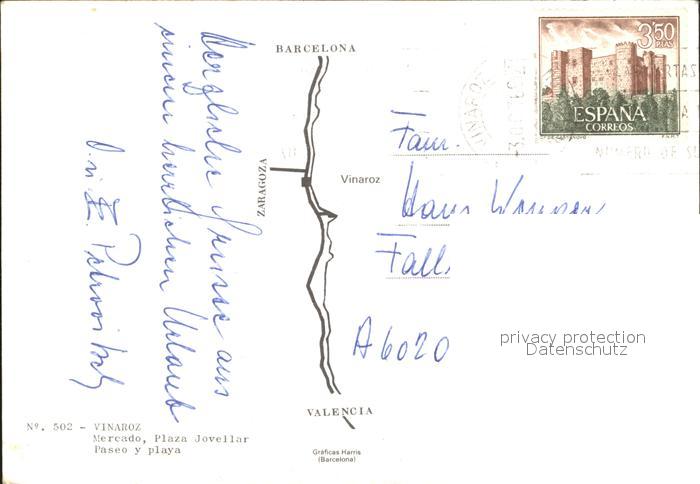 BARCELONA
ZARAGOZA
Vinaroz
VALENCIA
Herzliche Grüsse aus
einem herrlichen Urlaub
3,50
PTAS
ESPAÑA
CORREOS
VINAROZ
NUMERO DE
Fam.
Hans
Falle
A 6020
privacy protection
Datenschutz
Nº. 502 - VINAROZ
Mercado, Plaza Jovellar
Paseo y playa
Gráficas Harris
(Barcelona)